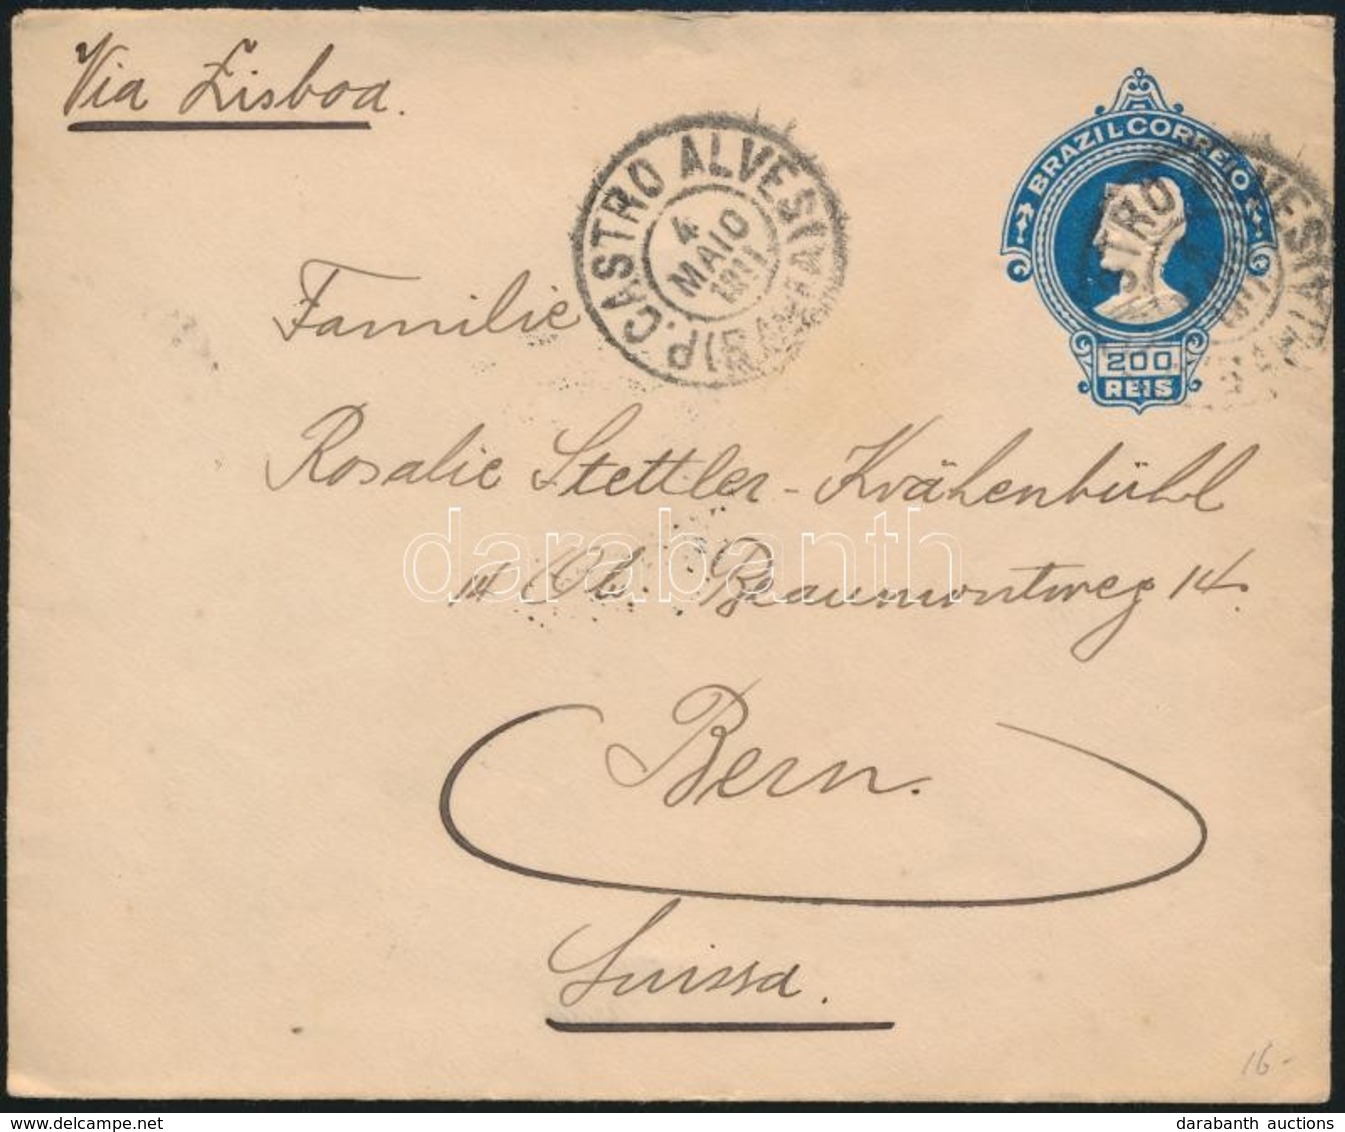 Via Lisboa.
BRAZIL CORREIO
200
REIS
P. CASTRO ALVES (BAHIA)
4
MAIO
1911
Familie
Rosalie Stettler-Krähenbühl
14 Ob. Beaumontweg 14.
Bern.
Suissa.
16-
darabanth
delcampe.net
darabanth auctions